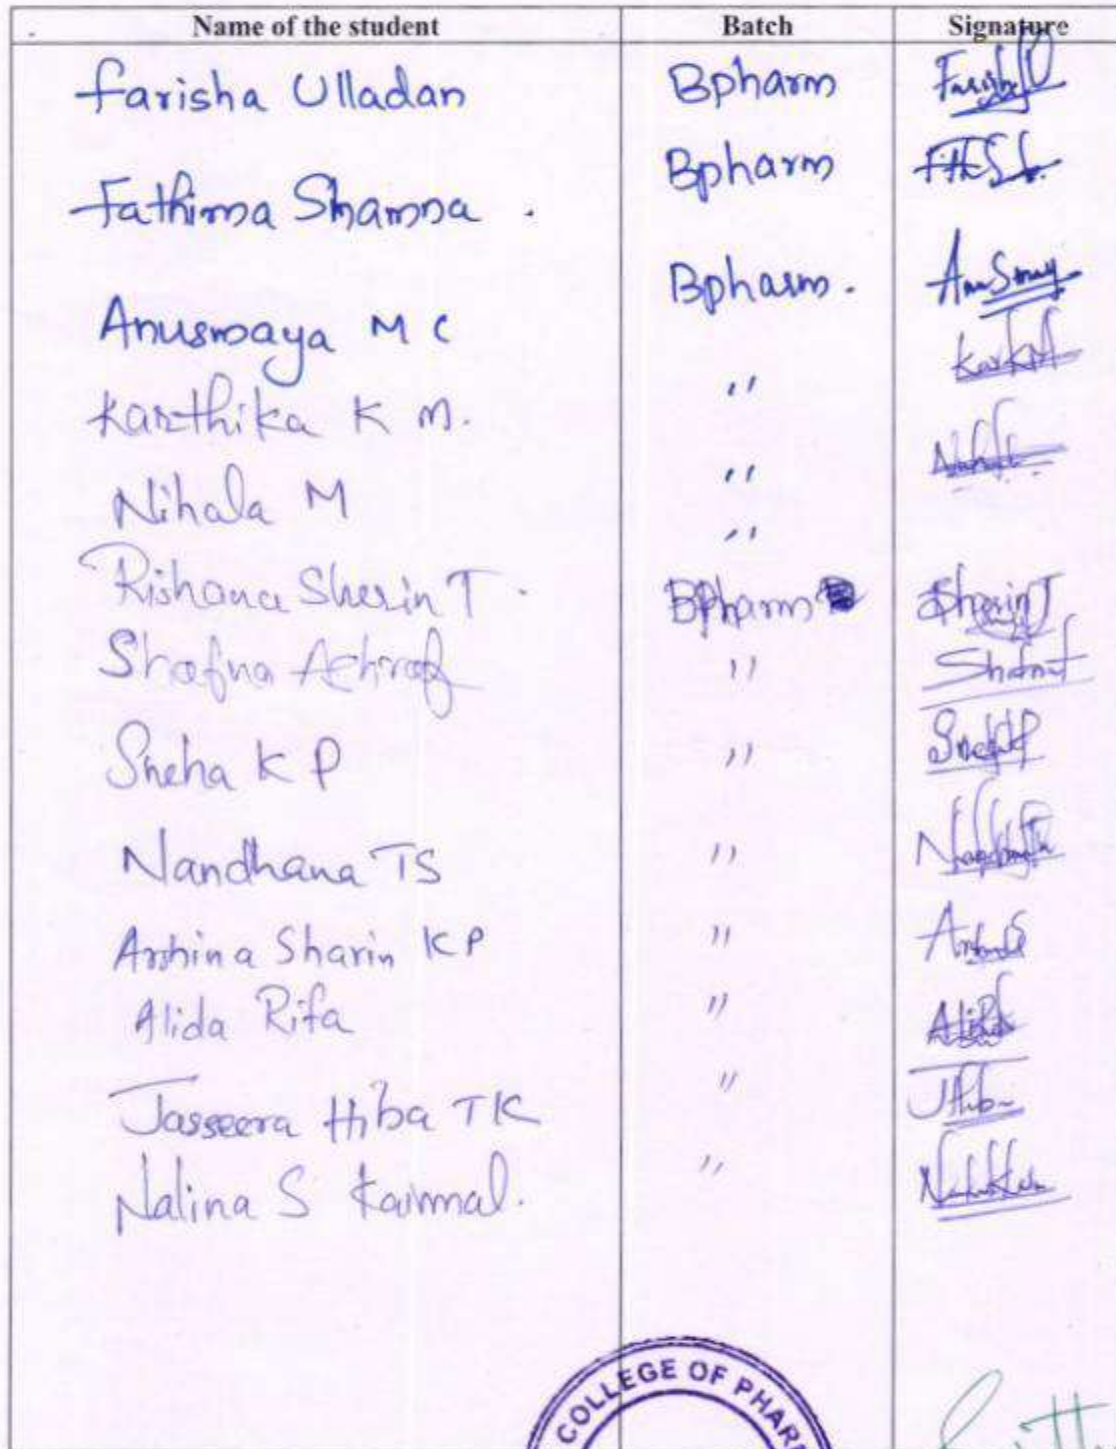 Name of the student Batch Signature
Farisha Ulladan Bpharm
Fathima Shamna . Bpharm
Anusmaya M C Bpharm.
Karthika K M. "
Nihala M "
"
Rishana Sherin T . BPharm Sherin T
Shafna Ashraf "
Sneha K P "
Nandhana TS "
Arshina Sharin KP "
Alida Rifa "
Jasseera Hiba TK "
Nalina S Kaimal. "
COLLEGE OF PHAR